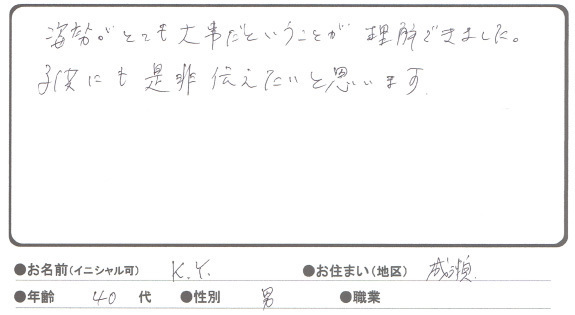 姿勢がとても大事だということが理解できました。
子供にも是非伝えたいと思います.
●お名前(イニシャル可) K.Y. ●お住まい(地区) 成瀬
●年齢 40 代 ●性別 男 ●職業